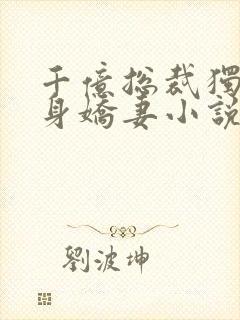 千億總裁獨
身嬌妻小說
劉波坤